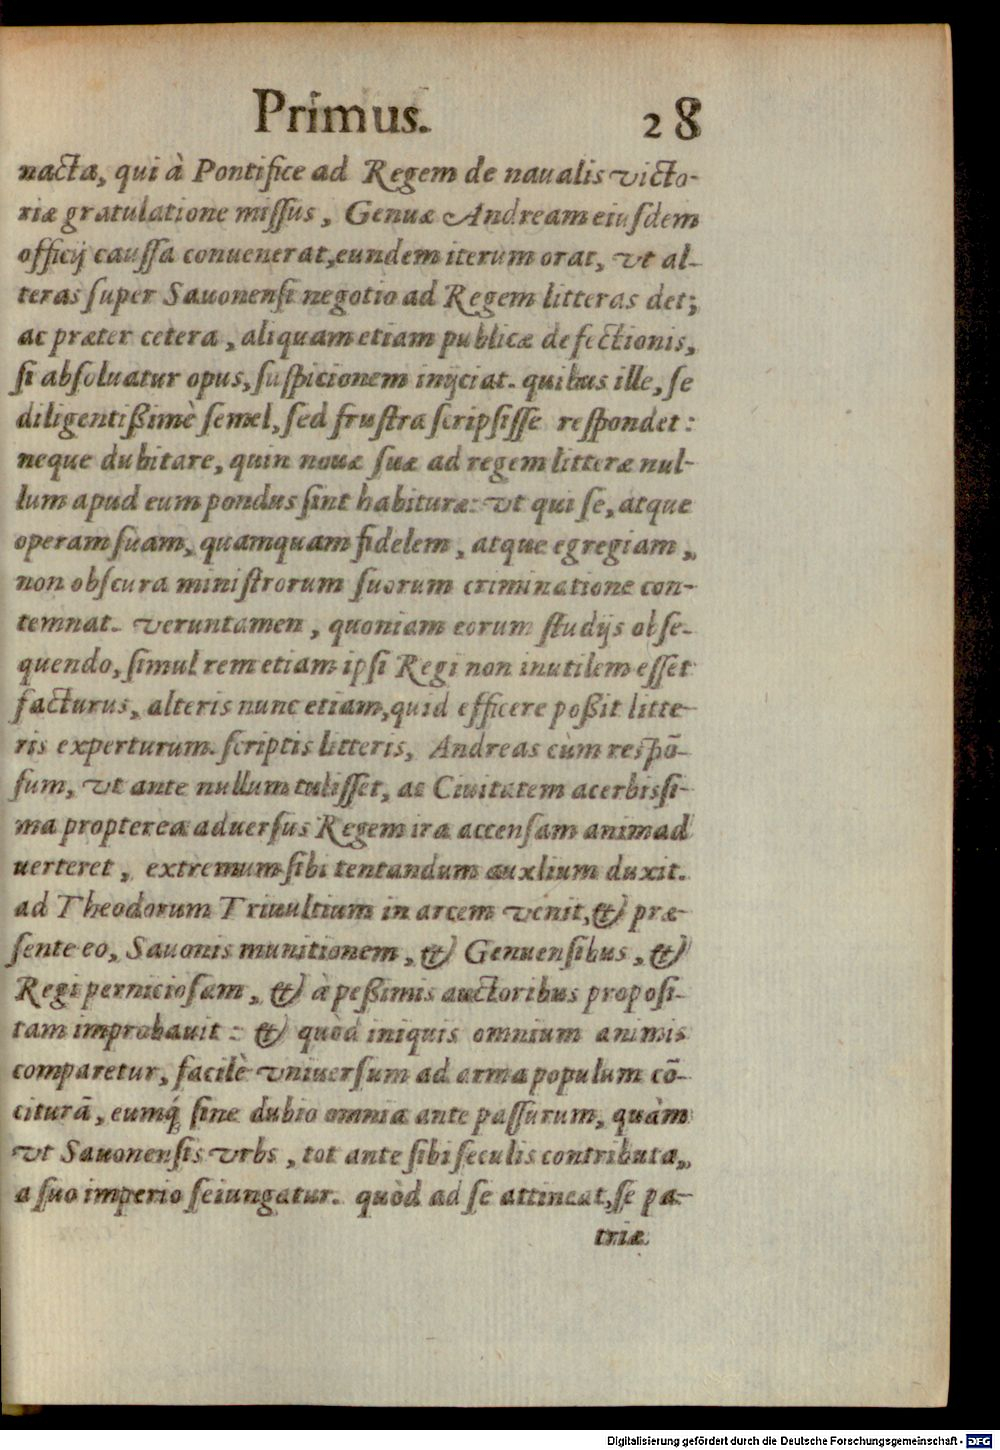 Primus. 28
nacta, qui à Pontifice ad Regem de naualis victo-
riæ gratulatione missus, Genuæ Andream eiusdem
officij caussa conuenerat, eundem iterum orat, vt al-
teras super Sauonensi negotio ad Regem litteras det;
ac præter cetera, aliquam etiam publicæ defectionis,
si absoluatur opus, suspicionem inijciat. quibus ille, se
diligentißimè semel, sed frustra scripsisse respondet:
neque dubitare, quin nouæ suæ ad regem litteræ nul-
lum apud eum pondus sint habituræ: vt qui se, atque
operam suam, quamquam fidelem, atque egregiam,
non obscura ministrorum suorum criminatione con-
temnat. veruntamen, quoniam eorum studijs obse-
quendo, simul rem etiam ipsi Regi non inutilem esset
facturus, alteris nunc etiam, quid efficere poßit litte-
ris experturum. scriptis litteris, Andreas cùm respō-
sum, vt ante nullum tulisset, ac Ciuitatem acerbissi-
ma propterea aduersus Regem ira accensam animad
uerteret, extremum sibi tentandum auxlium duxit.
ad Theodorum Triuultium in arcem venit, & præ-
sente eo, Sauonis munitionem, & Genuensibus, &
Regi perniciosam, & à peßimis auctoribus proposi-
tam improbauit: & quòd iniquis omnium animis
comparetur, facilè vniuersum ad arma populum cō-
citurā, eumq́ sine dubio omnia ante passurum, quàm
vt Sauonensis vrbs, tot ante sibi seculis contributa,
a suo imperio seiungatur. quòd ad se attineat, se pa-
triæ
Digitalisierung gefördert durch die Deutsche Forschungsgemeinschaft - DFG